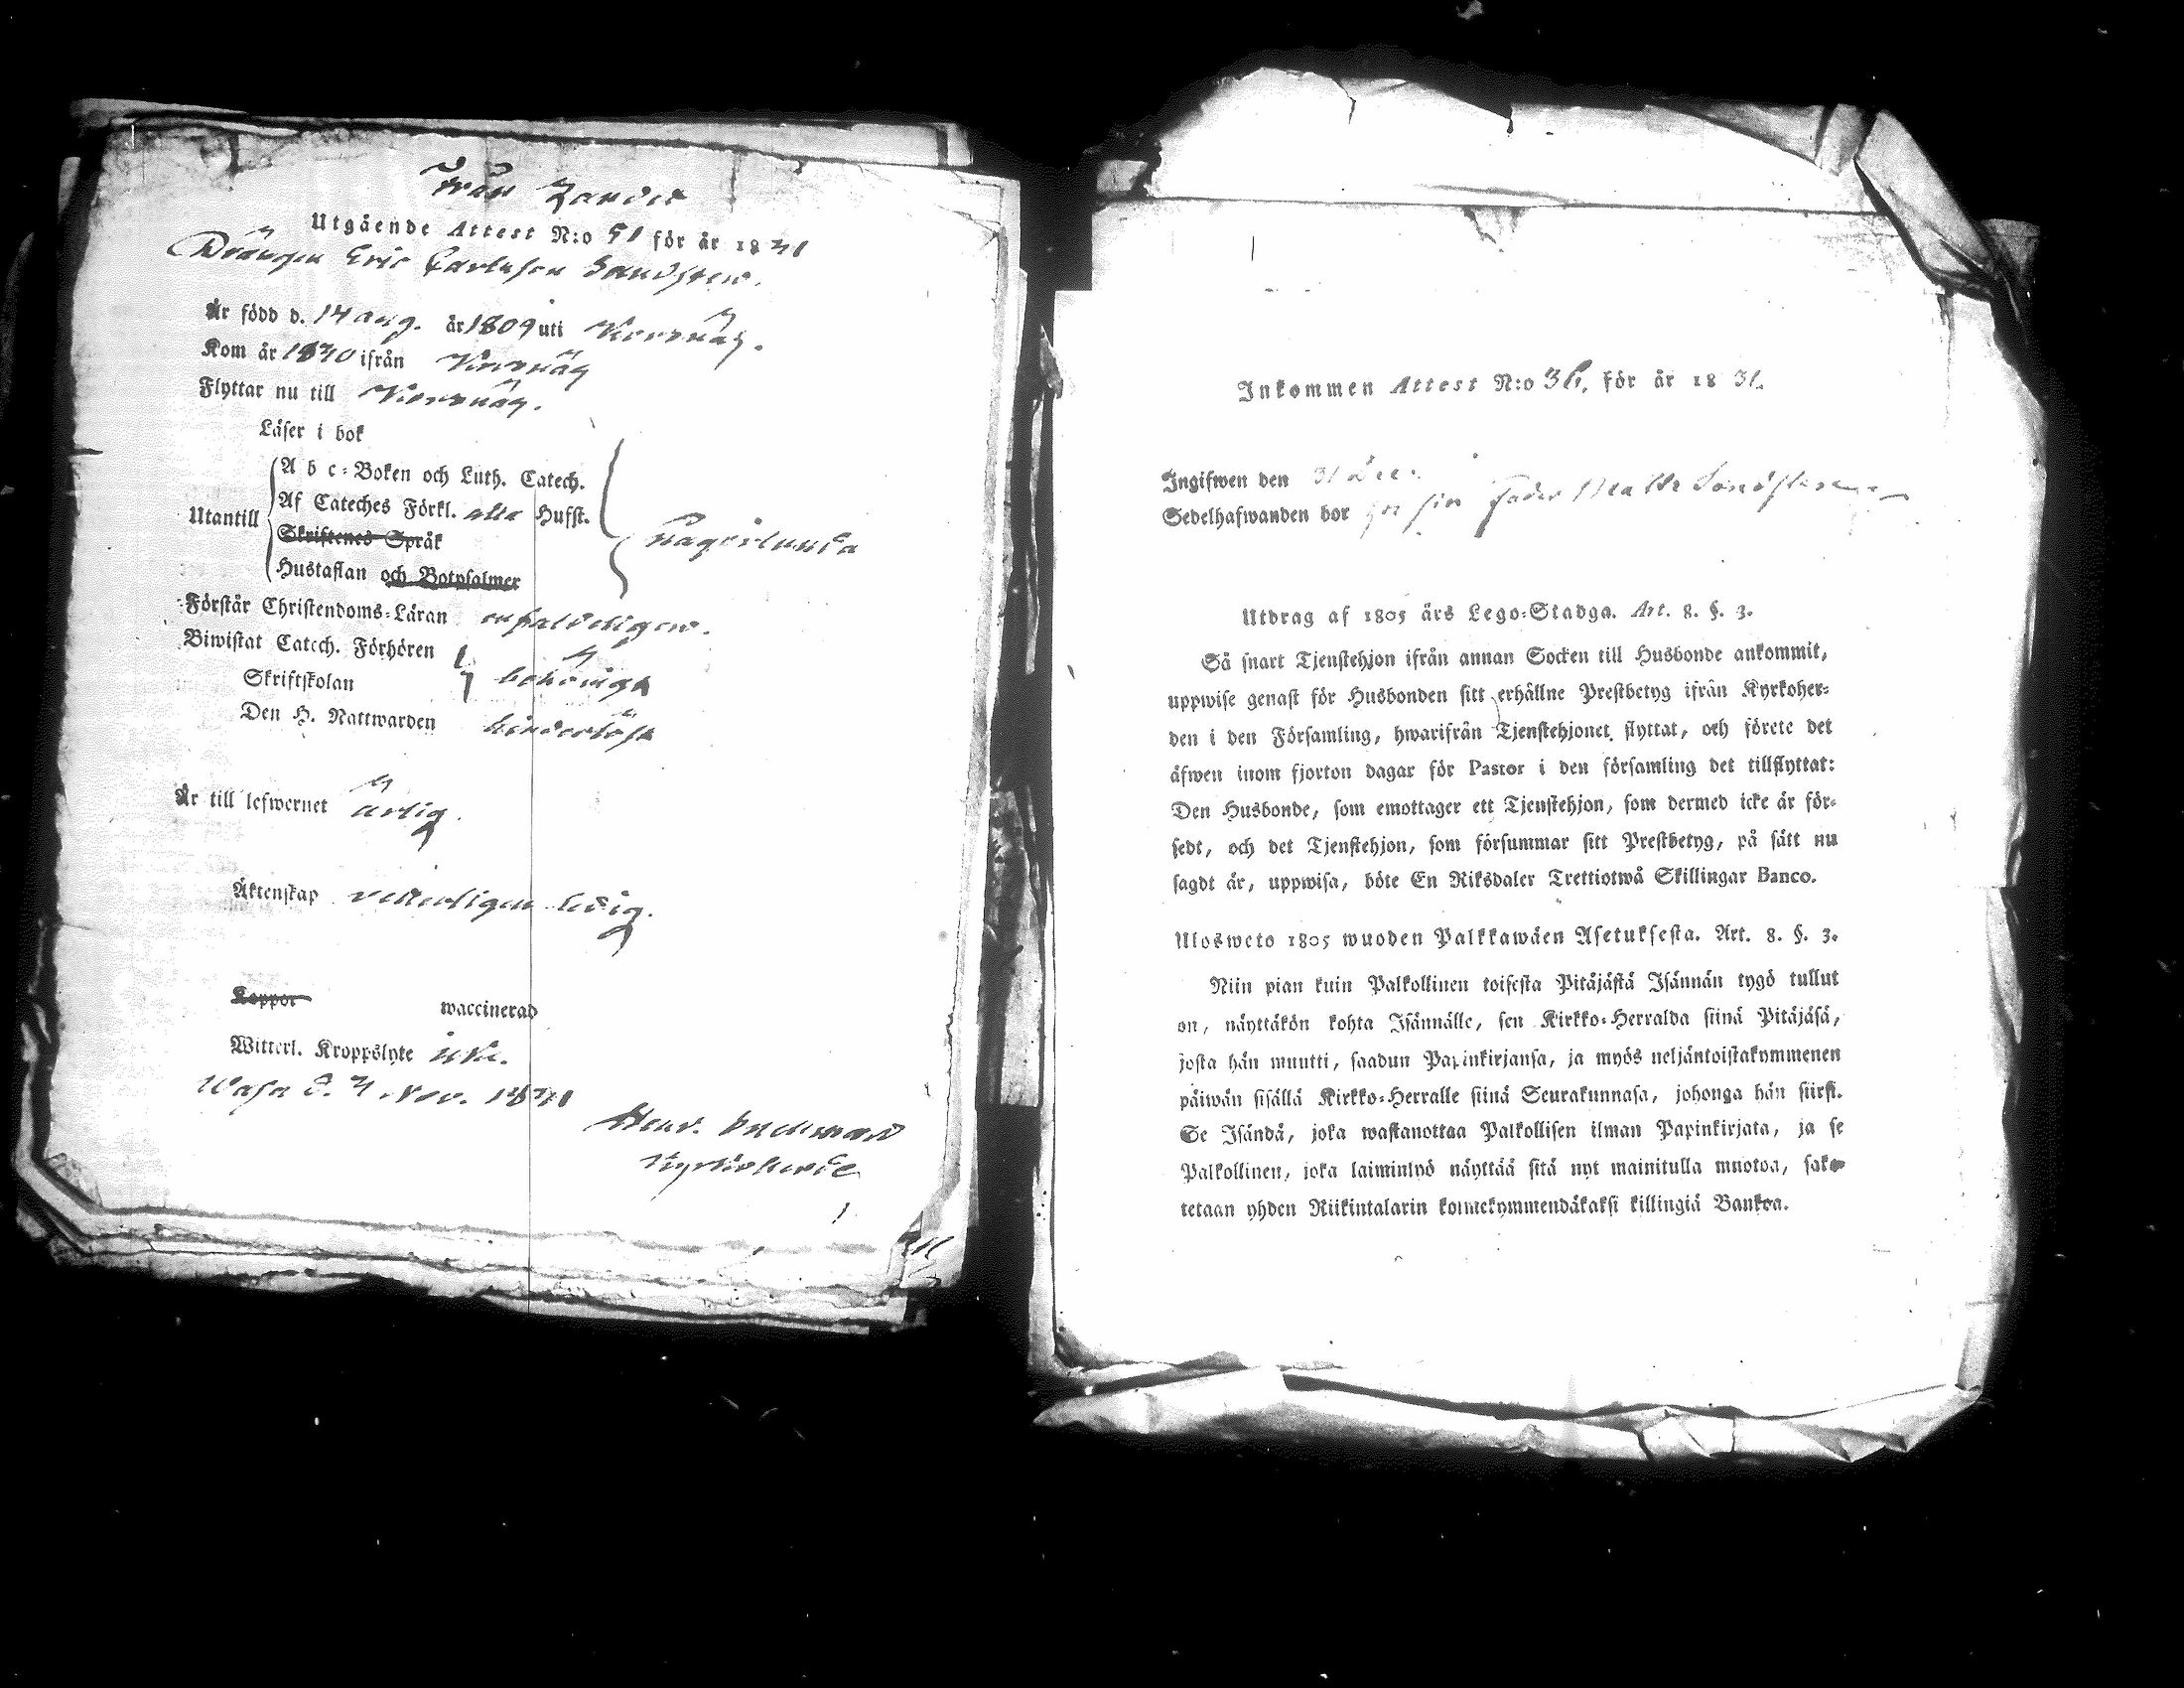 Från Landet
Utgående Attest N:o 51 för år 1831
Drängen Eric Carlsson Sandström.
Är född d. 14 aug. år 1809 uti Korsnäs.
Kom år 1830 ifrån Korsnäs
Flyttar nu till Korsnäs.
Läser i bok
A b c=Boken och Luth. Catech.
Utantill
Af Cateches Förkl. alla Hufst.
Skriftenes Språk
Hustaflan och Botpsalmer
någorlunda
Förstår Christendoms=Läran enfaldeligen.
Biwistat Catech. Förhören
Skriftskolan
behörigt
Den H. Nattwarden hinderlöst
Är till lefwernet ärlig.
Äktenskap veterligen ledig.
Koppor waccinerad
Witterl. Kroppslyte icke.
Wasa d. 4 Nov. 1831
Henr. Backman
Kyrkoherde
Inkommen Attest N:o 36. för år 1831.
Ingifwen den 31 Dec.
Sedelhafwanden bor hos sin fader
Utdrag af 1805 års Lego=Stadga. Art. 8. §. 3.
Så snart Tjenstehjon ifrån annan Socken till Husbonde ankommit,
uppwise genast för Husbonden sitt erhållne Prestbetyg ifrån Kyrkoher=
den i den Församling, hwarifrån Tjenstehjonet flyttat, och förete det
äfwen inom fjorton dagar för Pastor i den församling det tillflyttat:
Den Husbonde, som emottager ett Tjenstehjon, som dermed icke är för=
sedt, och det Tjenstehjon, som försummar sitt Prestbetyg, på sätt nu
sagdt är, uppwisa, böte En Riksdaler Trettiotwå Skillingar Banco.
Ulosweto 1805 wuoden Palkkawäen Asetuksesta. Art. 8. §. 3.
Niin pian kuin Palkollinen toisesta Pitäjästä Isännän tygö tullut
on, näyttäkön kohta Isännälle, sen Kirkko=Herralda siinä Pitäjäsä,
josta hän muutti, saadun Papinkirjansa, ja myös neljäntoistakymmenen
päiwän sisällä Kirkko=Herralle siinä Seurakunnasa, johonga hän siirsi.
Se Isändä, joka wastanottaa Palkollisen ilman Papinkirjata, ja se
Palkollinen, joka laiminlyö näyttää sitä nyt mainitulla muotoa, sako=
tetaan yhden Riikintalarin kolmekymmendäkaksi killingiä Bankoa.